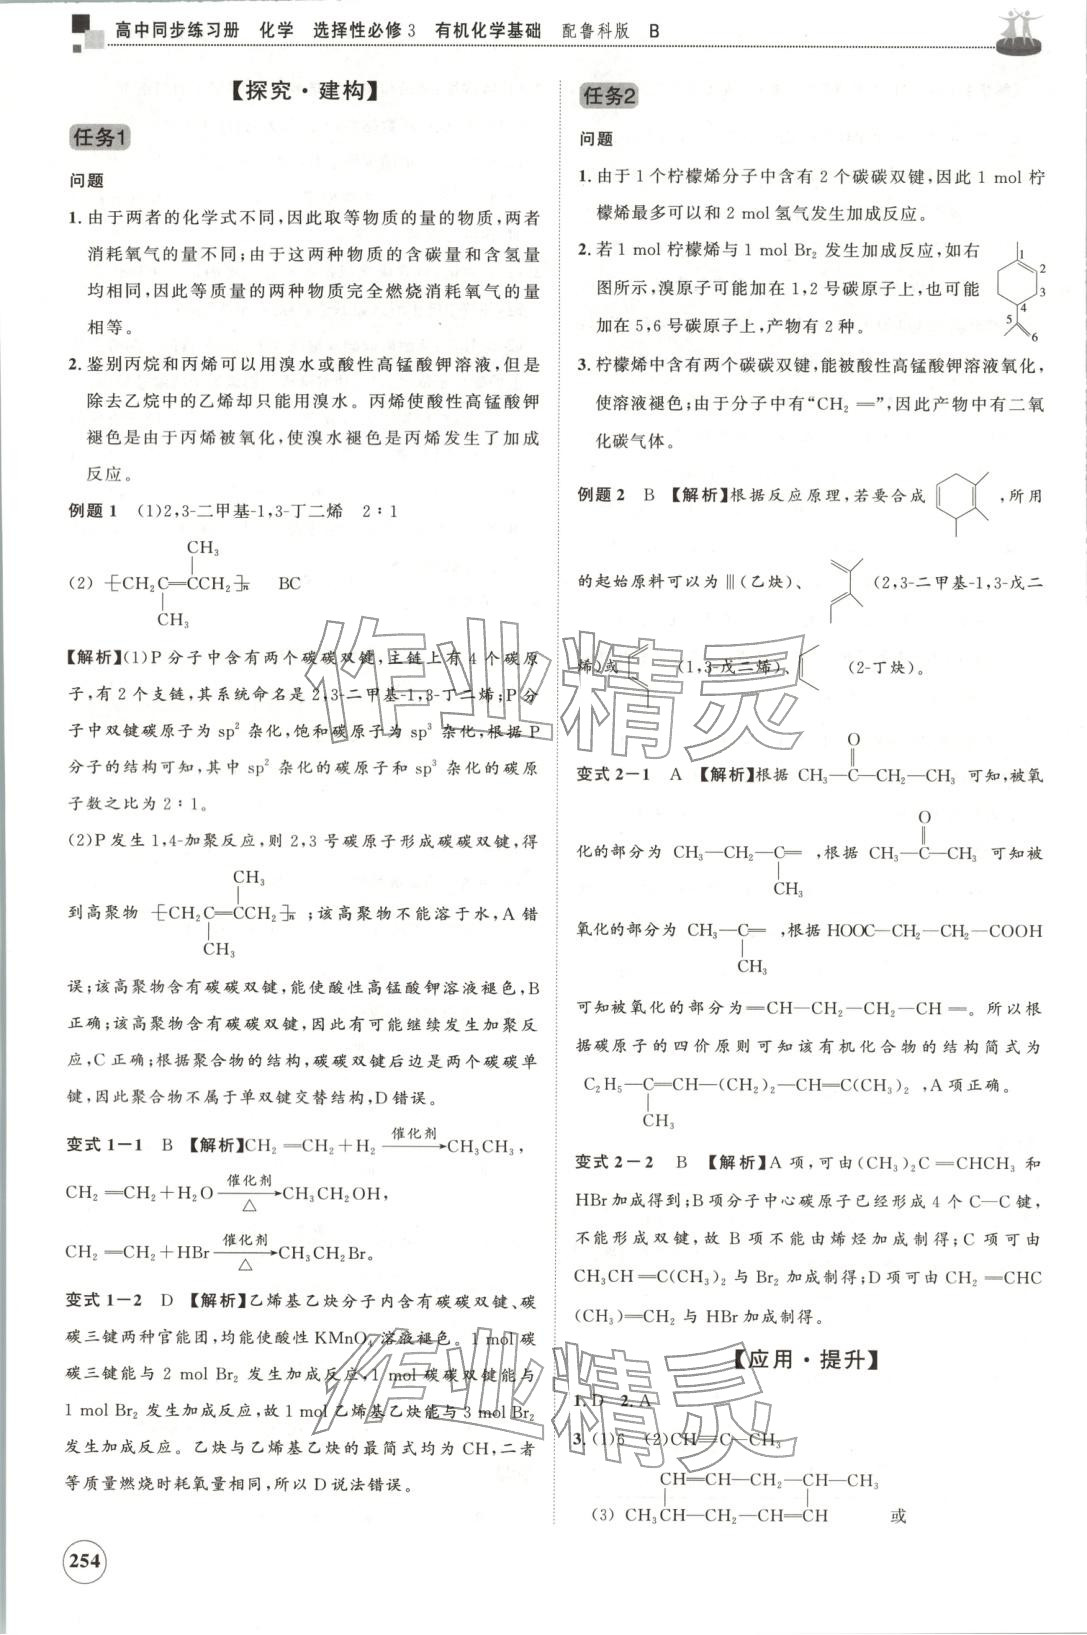 高中同步练习册 化学 选择性必修3 有机化学基础 配鲁科版 B
【探究·建构】
任务1
问题
1. 由于两者的化学式不同,因此取等物质的量的物质,两者
消耗氧气的量不同;由于这两种物质的含碳量和含氢量
均相同,因此等质量的两种物质完全燃烧消耗氧气的量
相等。
2. 鉴别丙烷和丙烯可以用溴水或酸性高锰酸钾溶液,但是
除去乙烷中的乙烯却只能用溴水。丙烯使酸性高锰酸钾
褪色是由于丙烯被氧化,使溴水褪色是丙烯发生了加成
反应。
例题1 (1)2,3-二甲基-1,3-丁二烯 2∶1
CH₃
(2) ⁅CH₂C═CCH₂⁆ₙ BC
CH₃
【解析】(1)P分子中含有两个碳碳双键,主链上有4个碳原
子,有2个支链,其系统命名是2,3-二甲基-1,3-丁二烯;P分
子中双键碳原子为sp² 杂化,饱和碳原子为sp³ 杂化,根据P
分子的结构可知,其中sp² 杂化的碳原子和sp³ 杂化的碳原
子数之比为2∶1。
(2)P发生1,4-加聚反应,则2,3号碳原子形成碳碳双键,得
CH₃
到高聚物 ⁅CH₂C═CCH₂⁆ₙ ;该高聚物不能溶于水,A错
CH₃
误;该高聚物含有碳碳双键,能使酸性高锰酸钾溶液褪色,B
正确;该高聚物中含有碳碳双键,因此有可能继续发生加聚反
应,C正确;根据聚合物的结构,碳碳双键后边是两个碳碳单
键,因此聚合物不属于单双键交替结构,D错误。
变式1－1 B 【解析】CH₂═CH₂+H₂ 催化剂→CH₃CH₃,
CH₂═CH₂+H₂O 催化剂△→CH₃CH₂OH,
CH₂═CH₂+HBr 催化剂△→CH₃CH₂Br。
变式1－2 D 【解析】乙烯基乙炔分子内含有碳碳双键、碳
碳三键两种官能团,均能使酸性KMnO₄溶液褪色。1 mol碳
碳三键能与2 mol Br₂ 发生加成反应,1 mol碳碳双键能与
1 mol Br₂ 发生加成反应,故1 mol乙烯基乙炔能与3 mol Br₂
发生加成反应。乙炔与乙烯基乙炔的最简式均为CH,二者
等质量燃烧时耗氧量相同,所以D说法错误。
254
任务2
问题
1. 由于1个柠檬烯分子中含有2个碳碳双键,因此1 mol柠
檬烯最多可以和2 mol氢气发生加成反应。
2. 若1 mol柠檬烯与1 mol Br₂ 发生加成反应,如右
图所示,溴原子可能加在1,2号碳原子上,也可能
加在5,6号碳原子上,产物有2种。
1
2
3
4
5
6
3. 柠檬烯中含有两个碳碳双键,能被酸性高锰酸钾溶液氧化,
使溶液褪色;由于分子中有“CH₂═”,因此产物中有二氧
化碳气体。
例题2 B 【解析】根据反应原理,若要合成 ,所用
的起始原料可以为|||(乙炔)、 (2,3-二甲基-1,3-戊二
烯)或 (1,3-戊二烯)、 (2-丁炔)。
O
变式2－1 A 【解析】根据 CH₃—C—CH₂—CH₃ 可知,被氧
O
化的部分为 CH₃—CH₂—C═ ,根据 CH₃—C—CH₃ 可知被
CH₃
氧化的部分为 CH₃—C═ ,根据HOOC—CH₂—CH₂—COOH
CH₃
可知被氧化的部分为═CH—CH₂—CH₂—CH═。所以根
据碳原子的四价原则可知该有机化合物的结构简式为
C₂H₅—C═CH—(CH₂)₂—CH═C(CH₃)₂ ,A项正确。
CH₃
变式2－2 B 【解析】A项,可由(CH₃)₂C═CHCH₃ 和
HBr加成得到;B项分子中心碳原子已经形成4个C—C键,
不能形成双键,故B项不能由烯烃加成制得;C项可由
CH₃CH═C(CH₃)₂ 与Br₂ 加成制得;D项可由CH₂═CHC
(CH₃)═CH₂ 与HBr加成制得。
【应用·提升】
1. D 2. A
3. (1)6 (2)CH≡C—CH₃
CH═CH—CH₂—CH—CH₃
(3) CH₃CH—CH₂—CH═CH 或
作业精灵
作业精灵